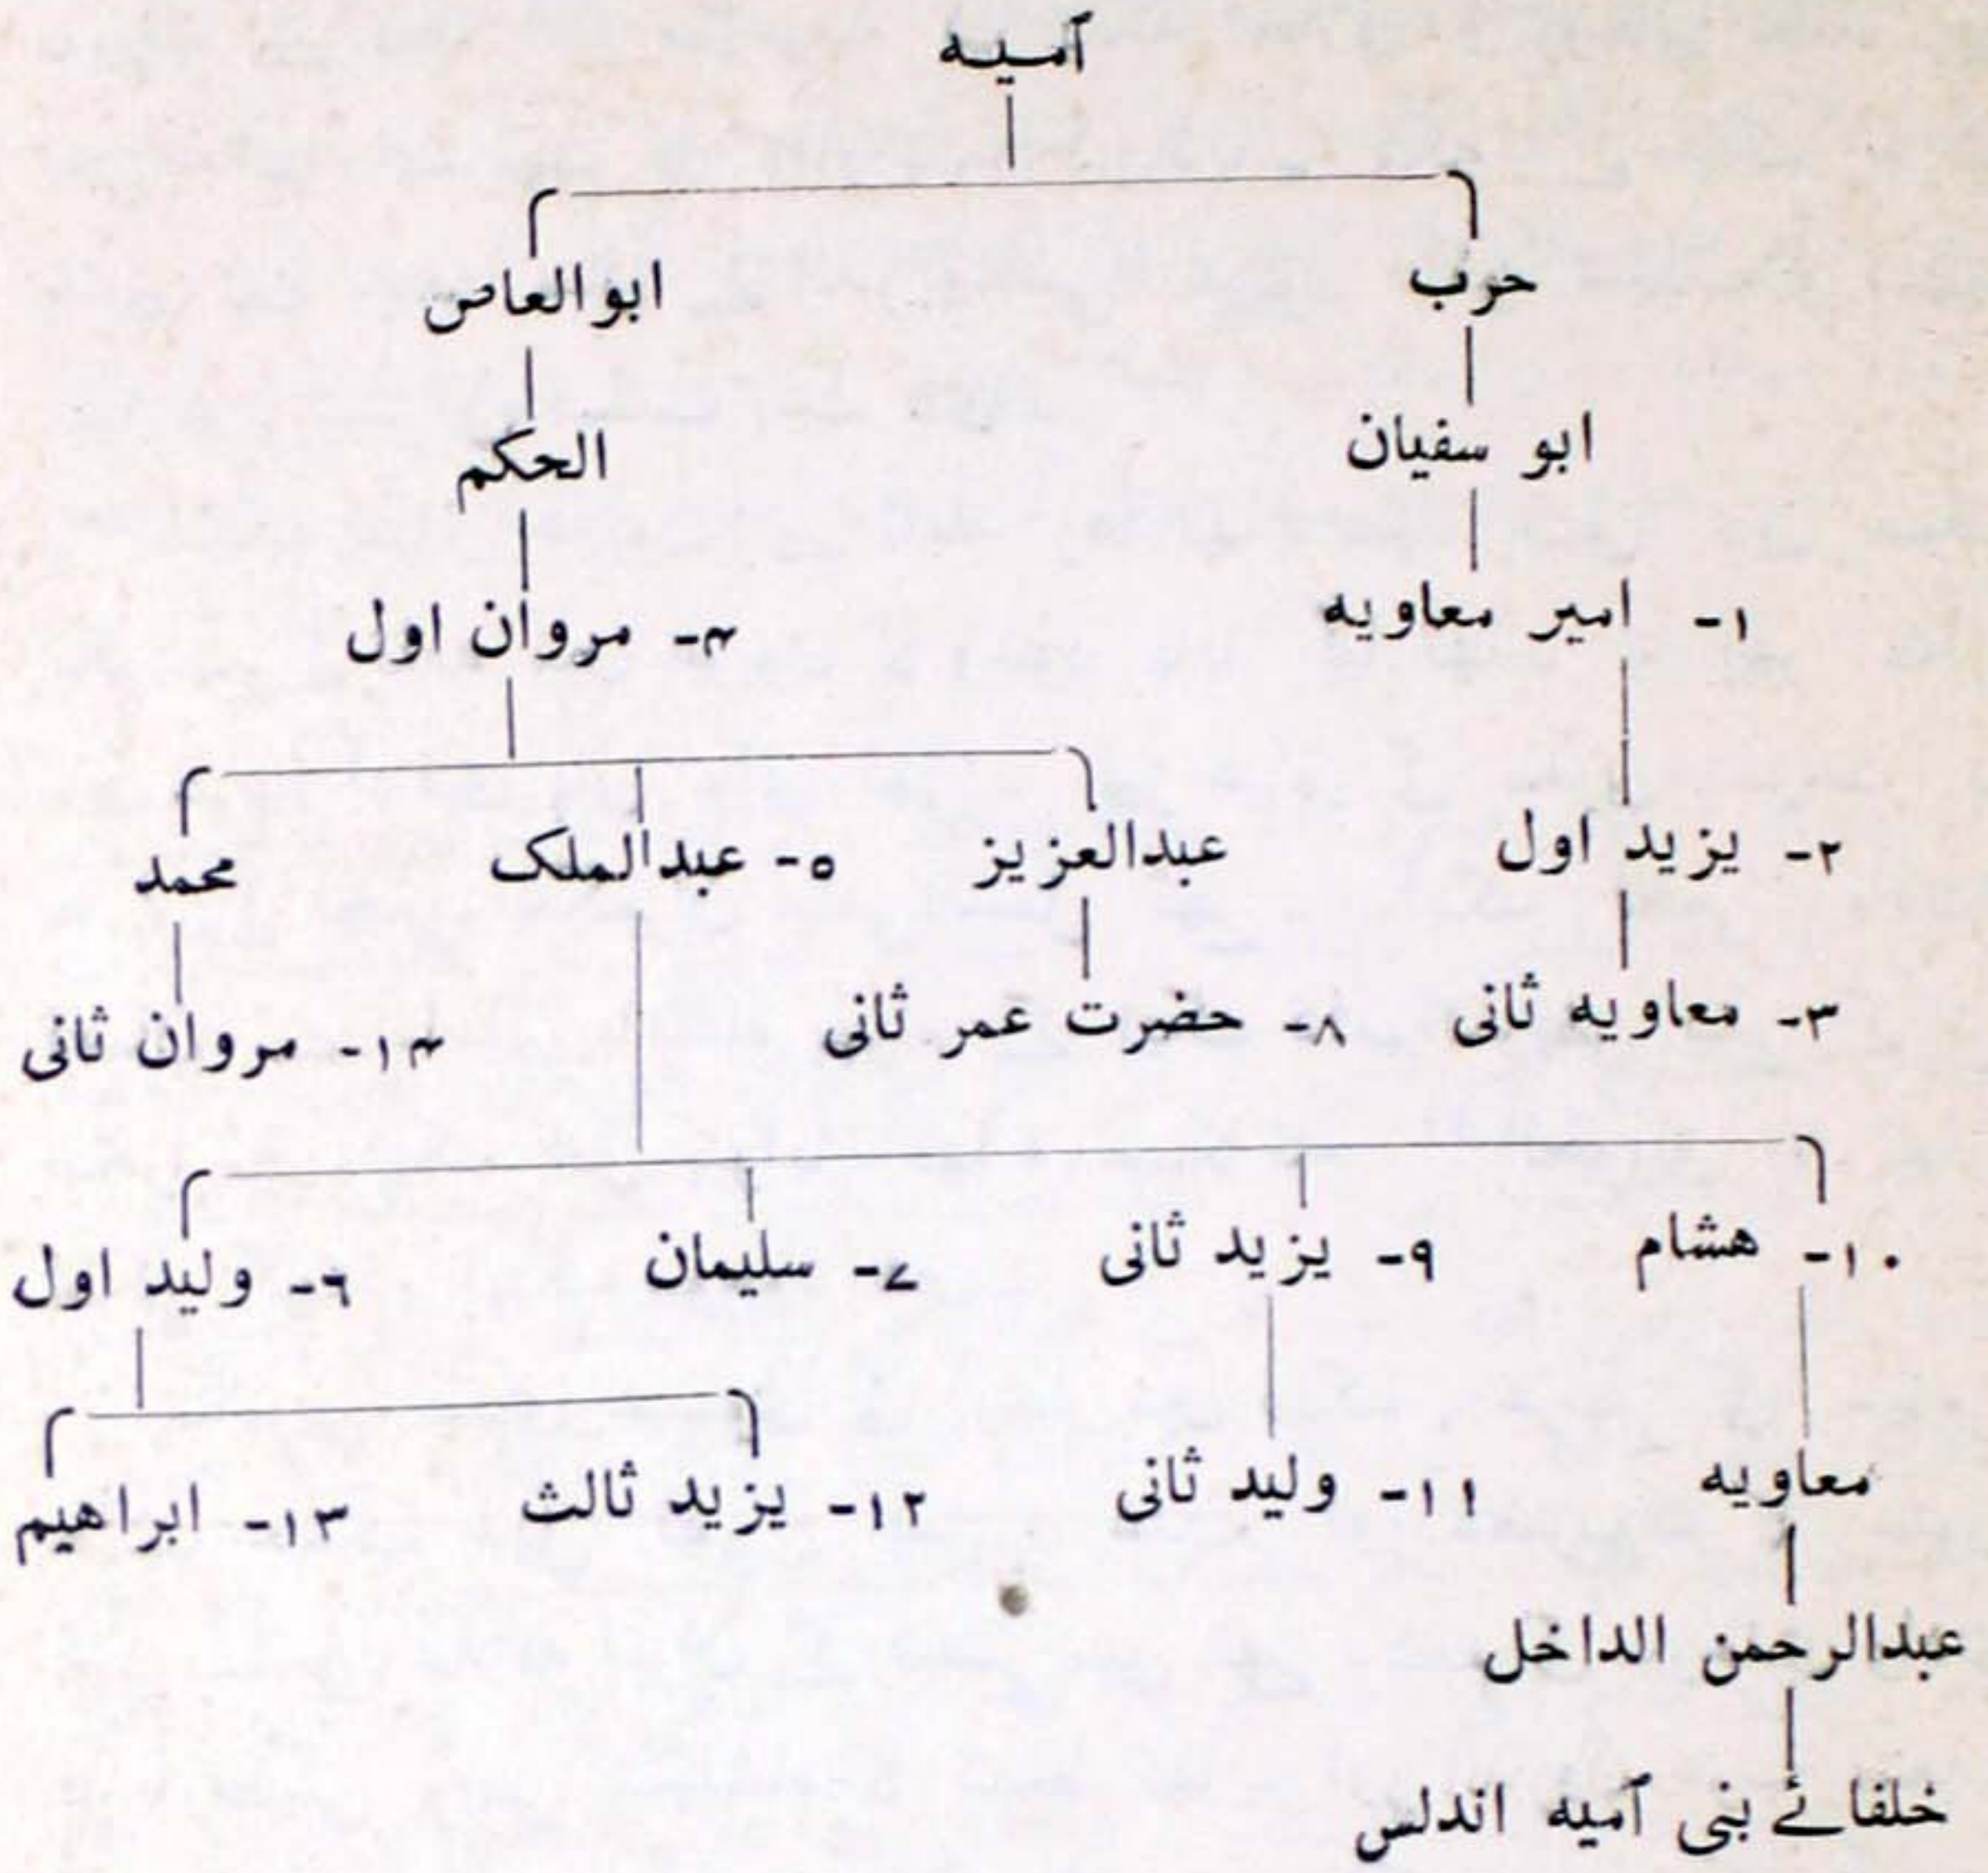 اُمیه
حرب ابوالعاص
ابو سفیان الحکم
۱- امیر معاویه ۴- مروان اول
۲- یزید اول عبدالعزیز ۵- عبدالملک محمد
۳- معاویه ثانی ۸- حضرت عمر ثانی ۱۴- مروان ثانی
۱۰- هشام ۹- یزید ثانی ۷- سلیمان ۶- ولید اول
معاویه ۱۱- ولید ثانی ۱۲- یزید ثالث ۱۳- ابراهیم
عبدالرحمن الداخل
خلفائے بنی اُمیه اندلس